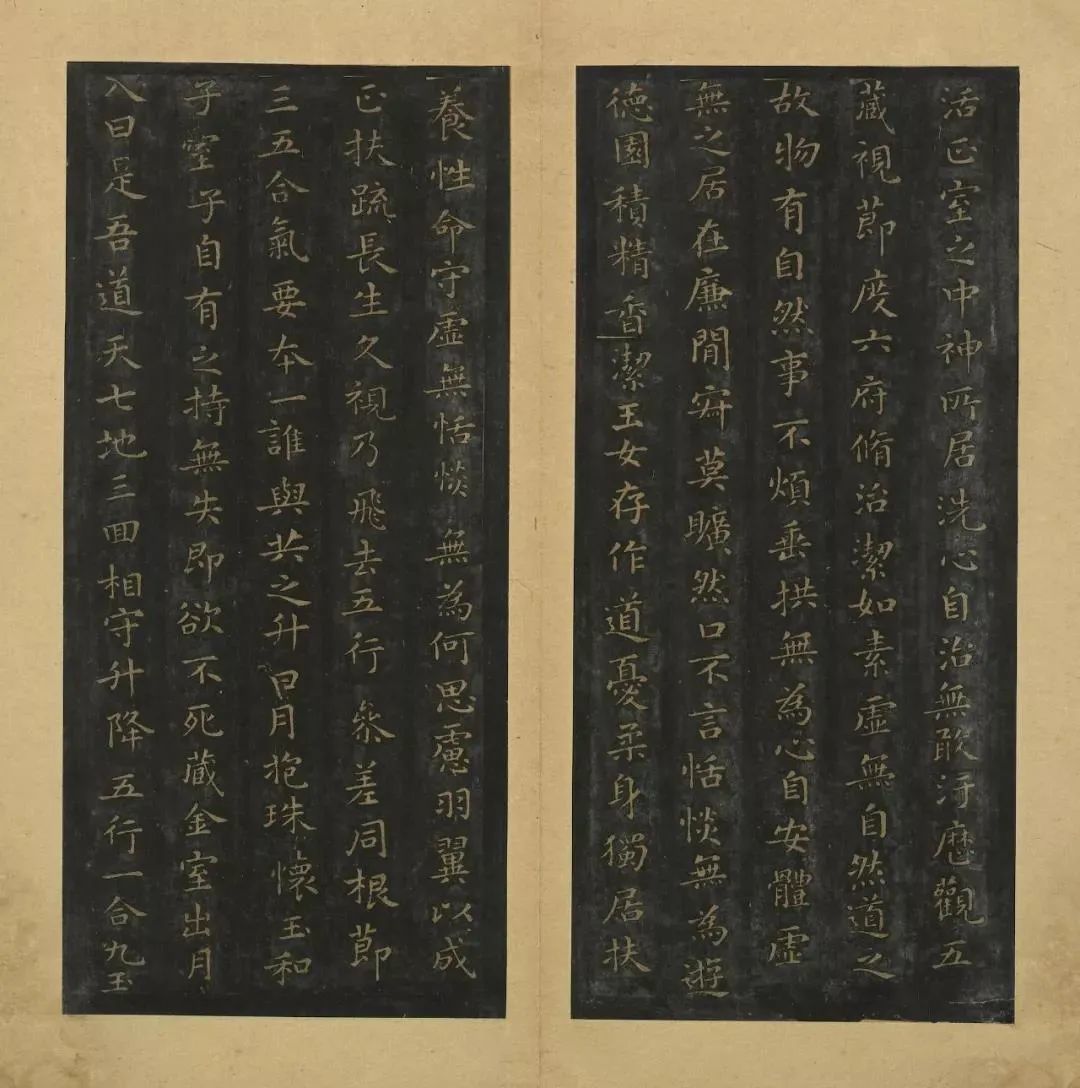 活正室之中神所居洗心自治無敢汙歷觀五
藏視節度六府脩治潔如素虛無自然道之
故物有自然事不煩垂拱無為心自安體虛
無之居在廉間寂莫曠然口不言恬惔無為遊
德園積精香潔玉女存作道憂柔身獨居扶
養性命守虛無恬惔無為何思慮羽翼以成
正扶疏長生久視乃飛去五行參差同根節
三五合氣要本一誰與共之升日月抱珠懷玉和
子室子自有之持無失即欲不死藏金室出月
入日是吾道天七地三回相守升降五行一合九玉